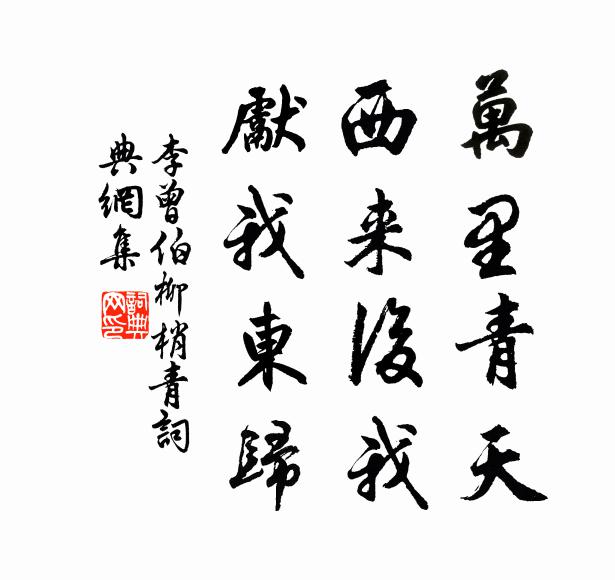 萬里青天
西来後我
獻我東歸
李曾伯柳梢青詞
典網集
詞典
网印